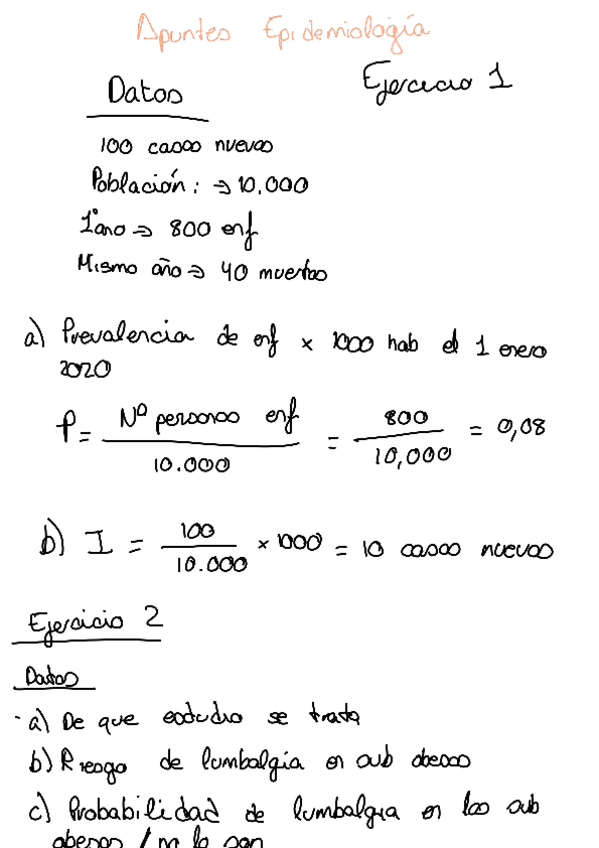 Apuntes Epidemiología
Datos
Ejercicio 1
100 casos nuevos
Población: → 10,000
1º ano → 800 enf
Mismo año → 40 muertos
a) Prevalencia de enf x 1000 hab el 1 enero
2020
P = Nº personas enf / 10.000 = 800 / 10,000 = 0,08
b) I = 100 / 10.000 x 1000 = 10 casos nuevos
Ejercicio 2
Datos
- a) De que estudio se trata
b) Riesgo de lumbalgia en sub obesos
c) Probabilidad de lumbalgia en los sub
obesos / no lo son